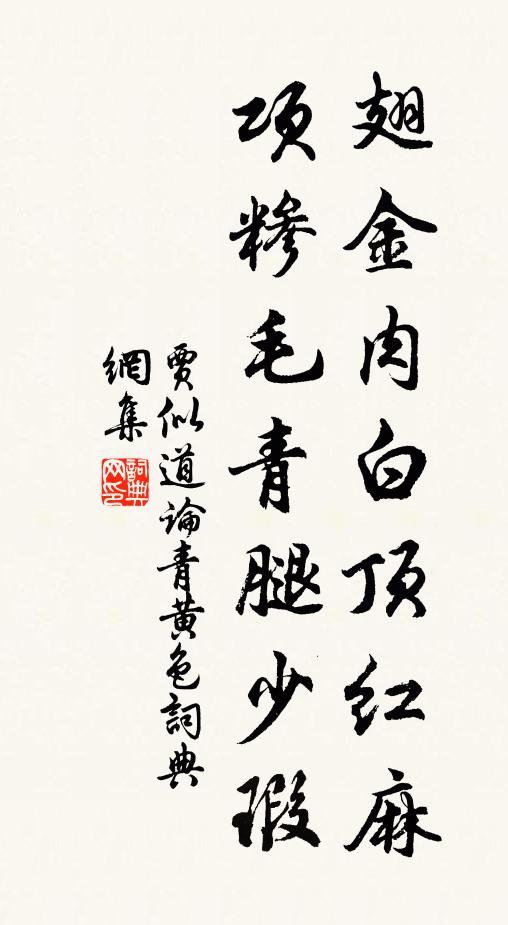 翅金肉白顶红麻
项糁毛青腿少瑕
賈似道論青黃色詞典
網集
詞典
网印